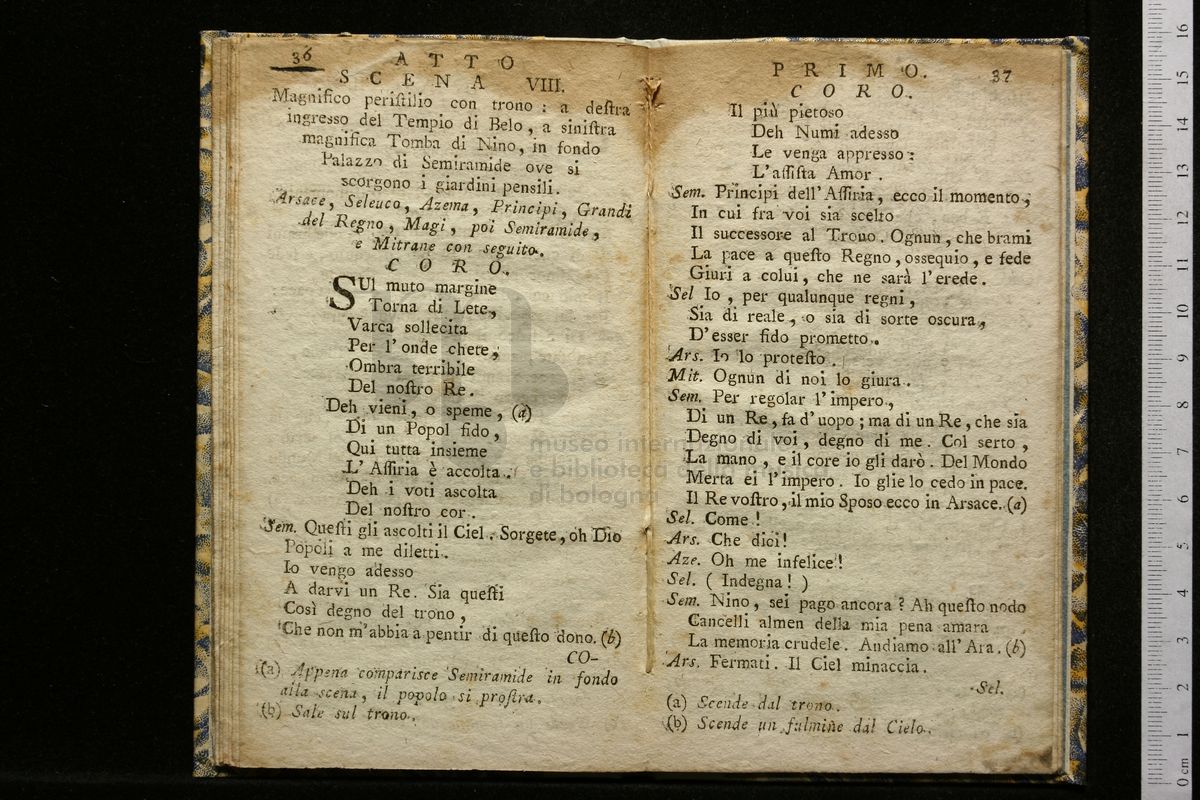 36
ATTO
SCENA VIII.
Magnifico periſtilio con trono : a deſtra
ingresso del Tempio di Belo, a siniſtra
magnifica Tomba di Nino, in fondo
Palazzo di Semiramide ove si
scorgono i giardini pensili.
Arsace, Seleuco, Azema, Principi, Grandi
del Regno, Magi, poi Semiramide,
e Mitrane con seguito.
CORO.
SUl muto margine
Torna di Lete,
Varca sollecita
Per l'onde chete,
Ombra terribile
Del noſtro Re.
Deh vieni, o speme, (a)
Di un Popol fido,
Qui tutta insieme
L'Aſſiria è accolta.
Deh i voti ascolta
Del noſtro cor.
Sem. Queſti gli ascolti il Ciel. Sorgete, oh Dio
Popoli a me diletti.
Io vengo adesso
A darvi un Re. Sia queſti
Così degno del trono,
Che non m'abbia a pentir di queſto dono. (b)
CO-
(a) Appena comparisce Semiramide in fondo
alla scena, il popolo si proſtra.
(b) Sale sul trono.
PRIMO.
37
CORO.
Il più pietoso
Deh Numi adesso
Le venga appresso:
L'aſſiſta Amor.
Sem. Principi dell'Aſſiria, ecco il momento,
In cui fra voi sia scelto
Il successore al Trono. Ognun, che brami
La pace a queſto Regno, ossequio, e fede
Giuri a colui, che ne sarà l'erede.
Sel Io, per qualunque regni,
Sia di reale, o sia di sorte oscura,
D'esser fido prometto.
Ars. Io lo proteſto.
Mit. Ognun di noi lo giura.
Sem. Per regolar l'impero,
Di un Re, fa d'uopo; ma di un Re, che sia
Degno di voi, degno di me. Col serto,
La mano, e il core io gli darò. Del Mondo
Merta ei l'impero. Io glie lo cedo in pace.
Il Re voſtro, il mio Sposo ecco in Arsace. (a)
Sel. Come!
Ars. Che dici!
Aze. Oh me infelice!
Sel. (Indegna!)
Sem. Nino, sei pago ancora? Ah queſto nodo
Cancelli almen della mia pena amara
La memoria crudele. Andiamo all'Ara. (b)
Ars. Fermati. Il Ciel minaccia.
Sel.
(a) Scende dal trono.
(b) Scende un fulmine dal Cielo.
museo internazionale
e biblioteca della musica
di bologna
0 cm 1 2 3 4 5 6 7 8 9 10 11 12 13 14 15 16